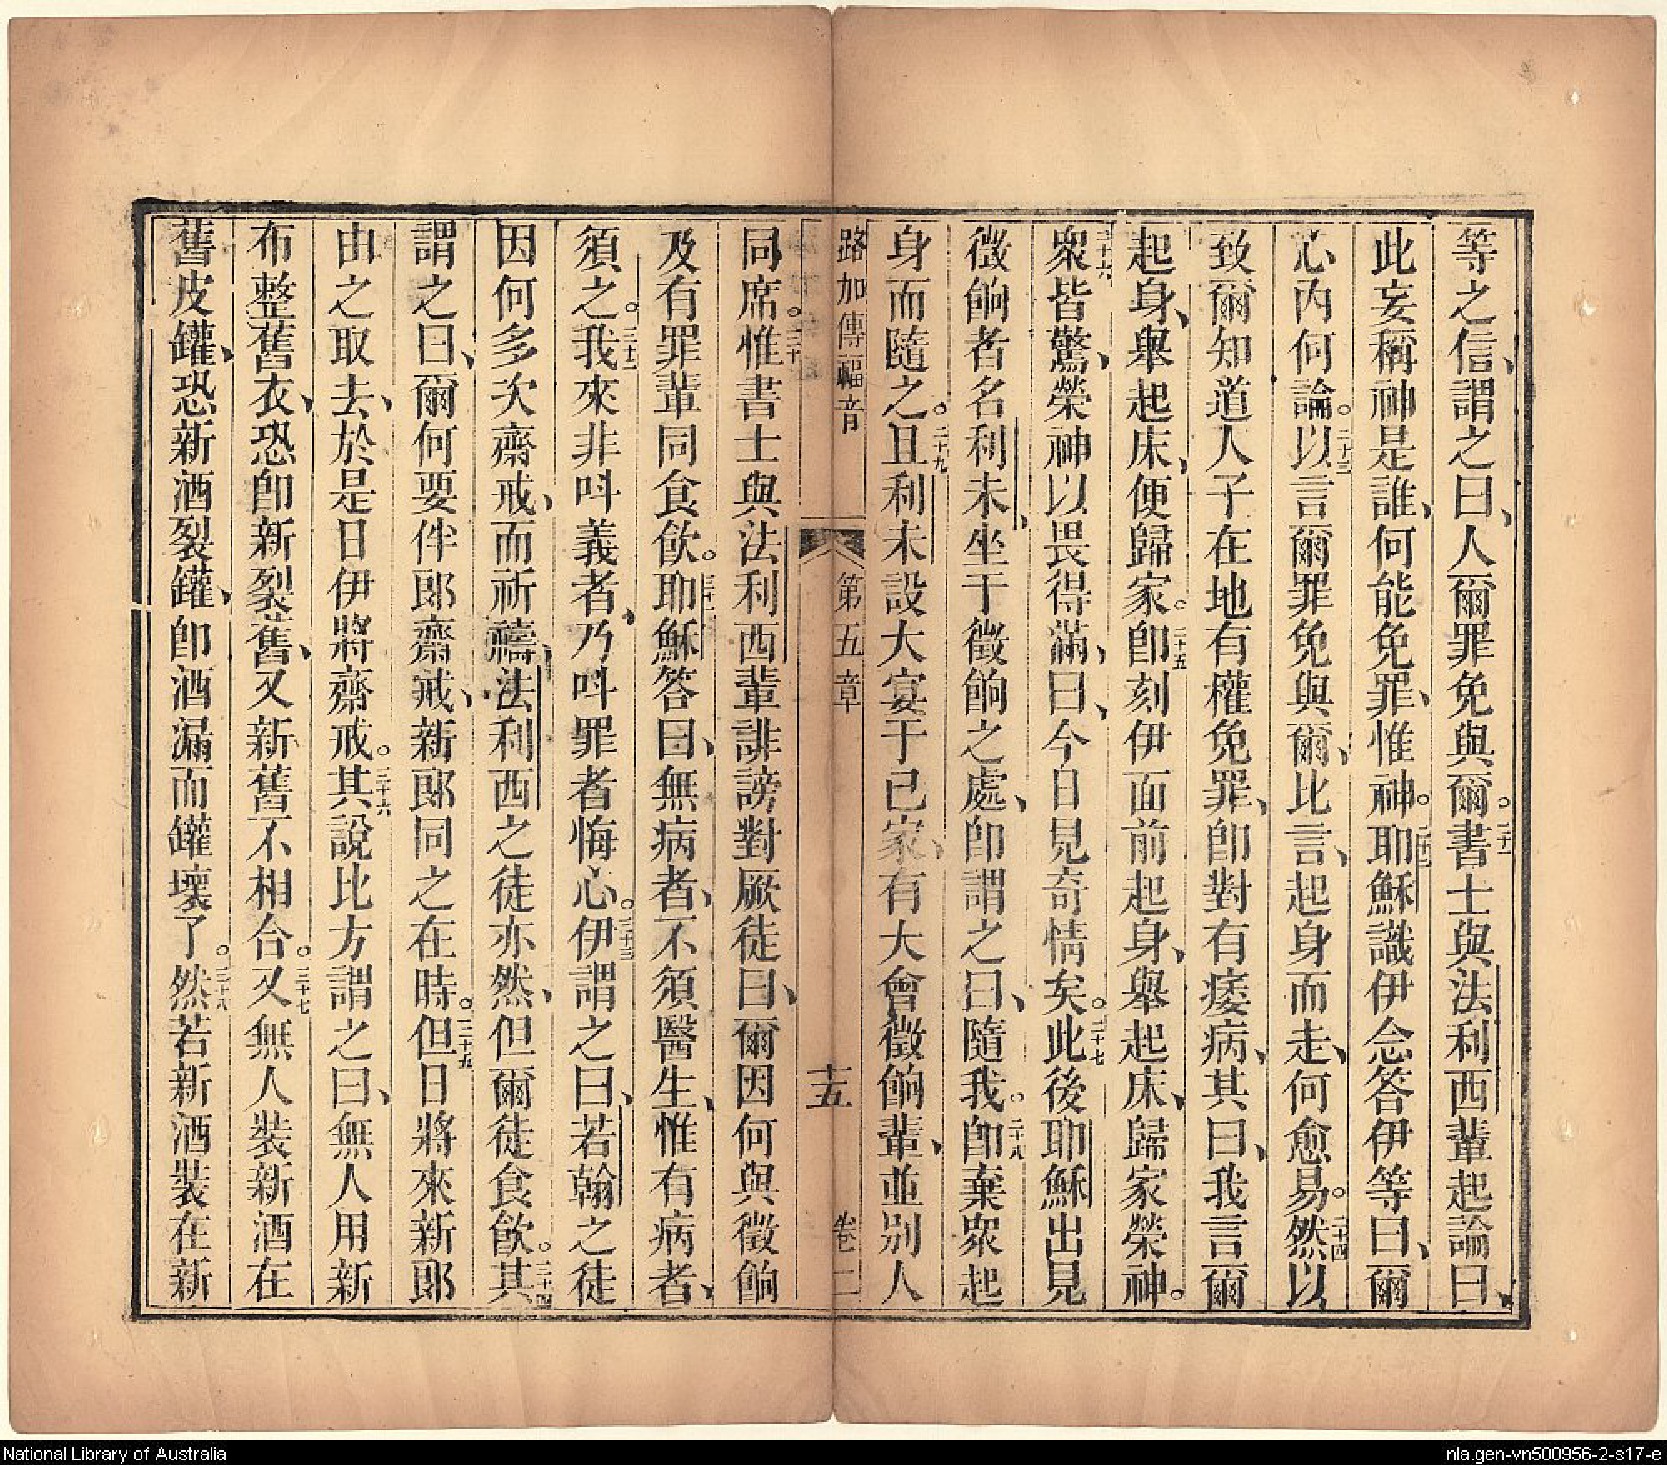 等之信、謂之曰、人爾罪免與爾。二十一書士與法利西輩起論曰、
此妄稱神是誰、何能免罪、惟神。二十二耶穌識伊念答伊等曰、爾
心內何論。二十三以言爾罪免與爾、比言、起身而走、何愈易。二十四然以
致爾知道人子在地有權免罪、卽對有痿病、其曰、我言爾
起身、舉起床、便歸家。二十五卽刻伊面前起身、舉起床、歸家榮神。
二十六衆皆驚、榮神以畏得滿、曰、今日見奇情矣。二十七此後耶穌出見
徵餉者名利未、坐于徵餉之處、卽謂之曰、隨我。二十八卽棄衆起
身而隨之。二十九且利未設大宴于己家、有大會徵餉輩、並別人
路加傳福音 第五章 十五 卷二
同席。三十惟書士與法利西輩誹謗對厥徒曰、爾因何與徵餉
及有罪輩同食飮。三十一耶穌答曰、無病者、不須醫生、惟有病者、
須之。三十二我來非呌義者、乃呌罪者悔心。三十三伊謂之曰、若翰之徒
因何多次齋戒、而祈禱、法利西之徒亦然、但爾徒食飮。三十四其
謂之曰、爾何要伴郞齋戒、新郞同之在時。三十五但日將來新郞
由之取去、於是日伊將齋戒。三十六其說比方謂之曰、無人用新
布整舊衣、恐卽新裂舊、又新舊不相合。三十七又無人裝新酒在
舊皮罐、恐新酒裂罐、卽酒漏而罐壞了。三十八然若新酒裝在新
National Library of Australia
nla.gen-vn500956-2-s17-e